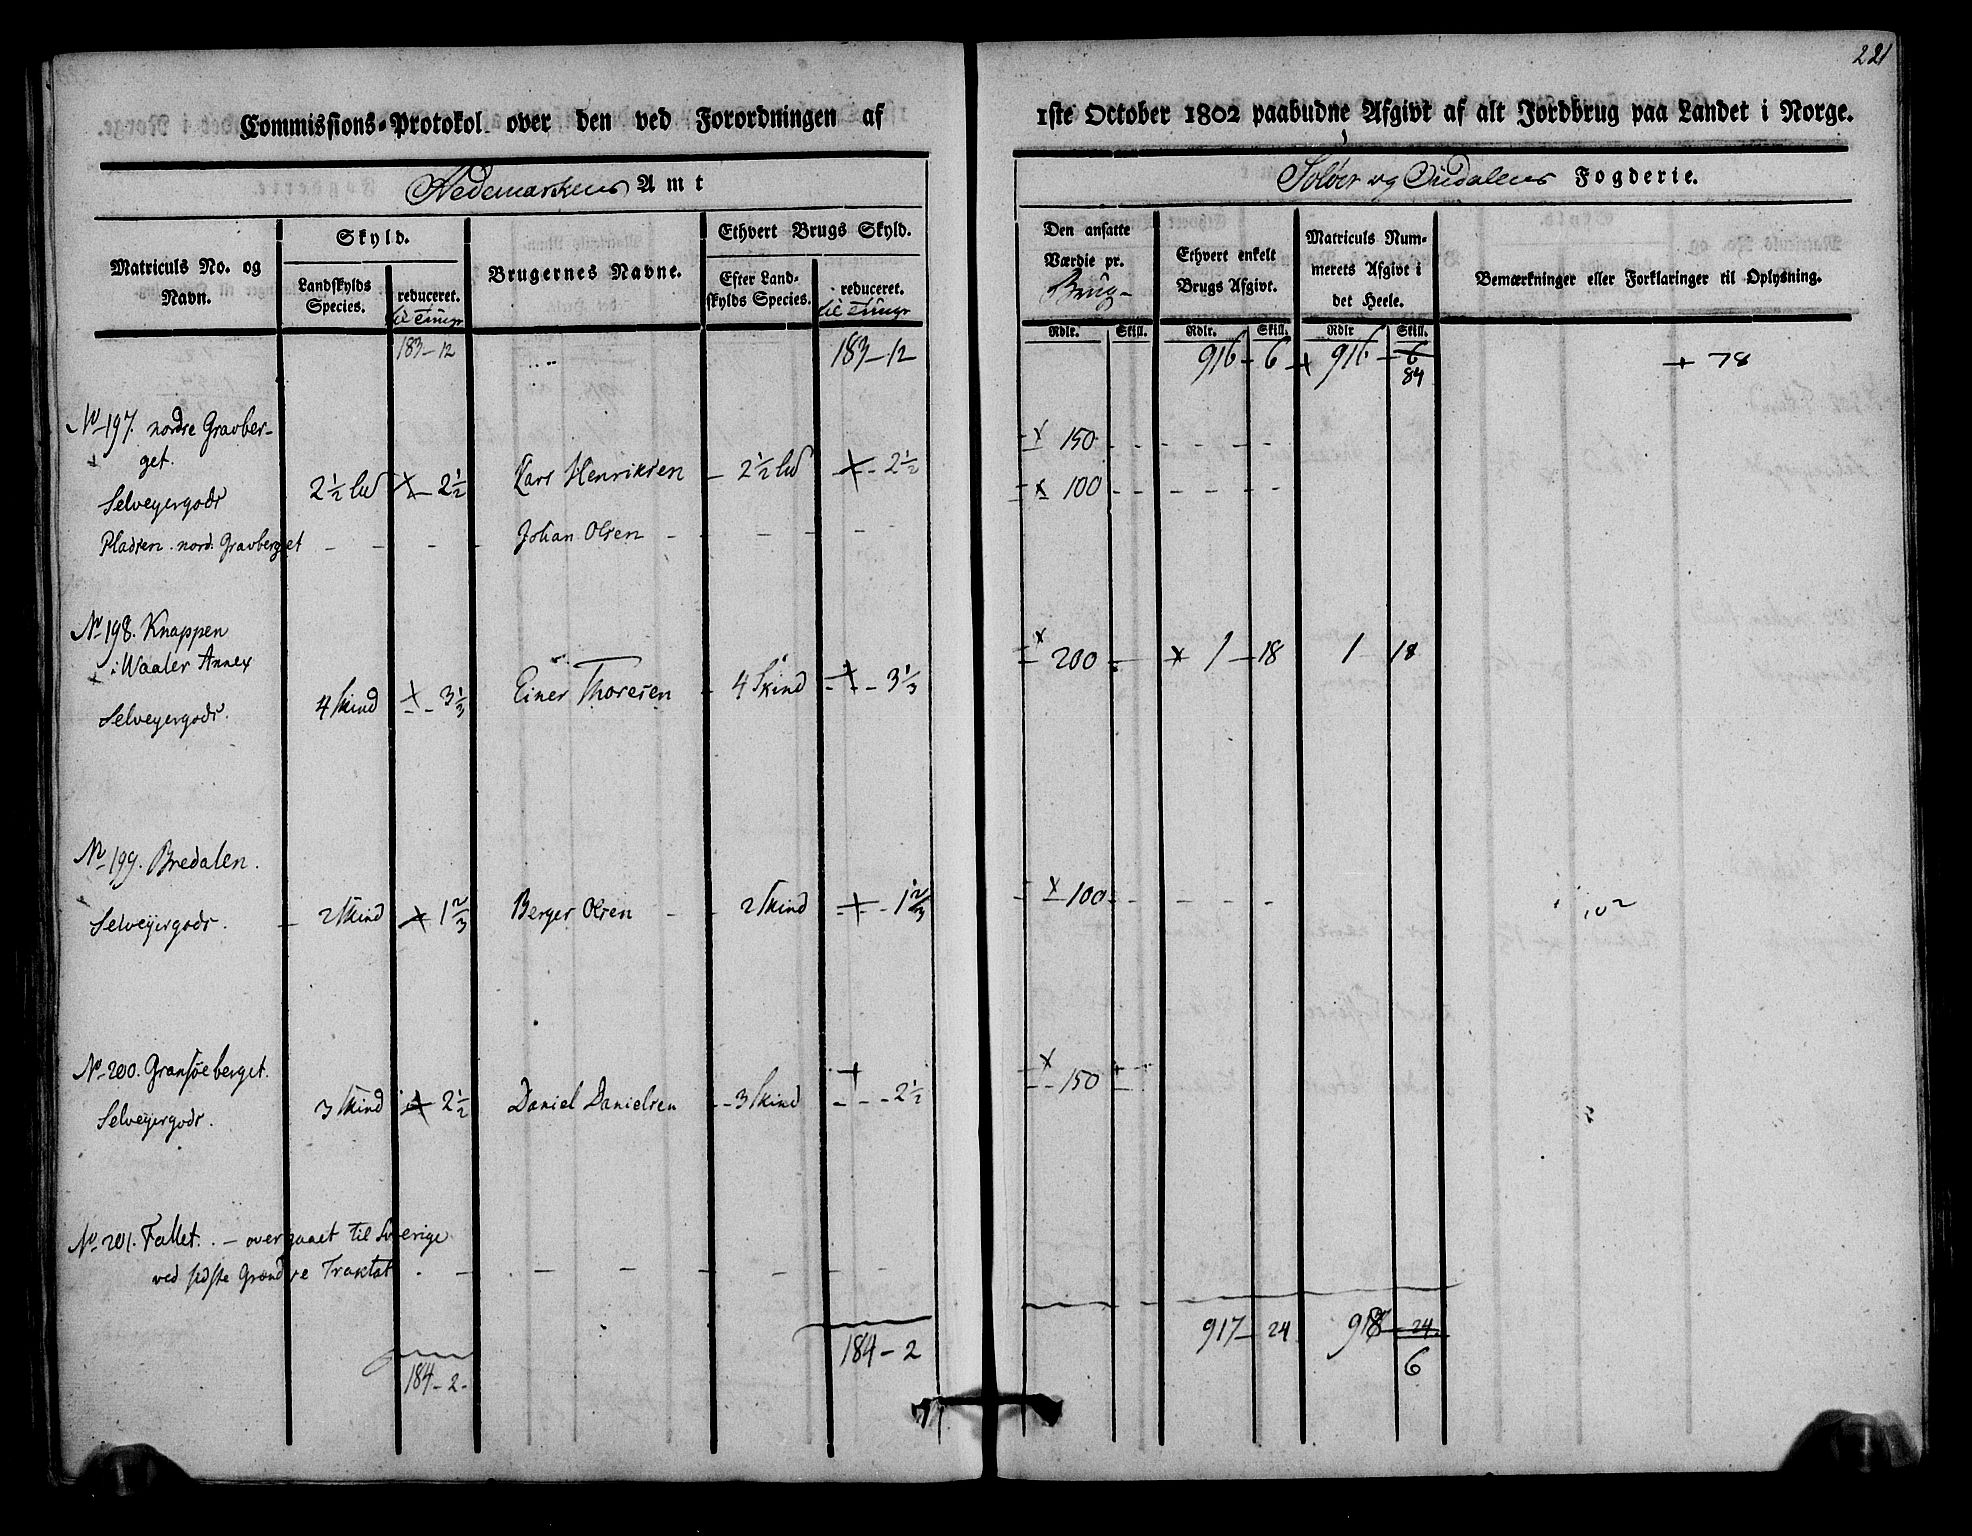 221
Commissions-Protokol over den ved Forordningen af 1ste October 1802 paabudne Afgivt af alt Jordbrug paa Landet i Norge.
Hedemarkens Amt
Soløer og Oudalens Fogderie.
Matriculs No. og Navn.
Skyld.
Landskylds Species.
reduceret.
til Tunge
Brugernes Navne.
Ethvert Brugs Skyld.
Efter Landskylds Species.
reduceret.
til Tunge
Den ansatte Værdie pr.
Brug
Ethvert enkelt Brugs Afgivt.
Matriculs Nummerets Afgivt i det Heele.
Bemærkninger eller Forklaringer til Oplysning.
Rdlr. Skill. Rdlr. Skill. Rdlr Skill.
183-12 183-12 916-6 + 916-6 + 78
84
No 197. nordre Gravber-
get.
Selveyergods 2 1/2 2 1/2 Lars Henriksen 2 1/2 2 1/2 150
Pladsen nord. Gravberget Johan Olsen 100
No 198. Knappen
i Waaler Annex
Selveyergods. 4 Skind 3 1/3 Einer Thoresen 4 Skind 3 1/3 200 1-18 1 18
No 199. Bredalen.
Selveyergods. 2 Skind 1 2/3 Berger Olsen 2 Skind 1 2/3 100
No 200. Gransöeberget.
Selveyergods. 3 Skind 2 1/2 Daniel Danielsen 3 Skind 2 1/2 150
No 201. Fallet. - overgaaet til Sverige
ved sidste Grændse Traktat
184-2 184-2 917-24 918-24
6